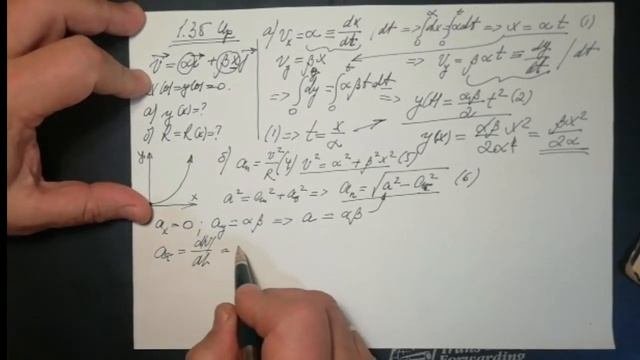 1.35 Ир
v⃗ = αi⃗ + βxj⃗
x(0)=y(0)=0.
а) y(x)=?
б) R=R(x)=?
y
x
а) Vx = α ≡ dx/dt, | dt => ∫dx = ∫αdt => x = αt (1)
Vy = βx => Vy = βαt ≡ dy/dt, | dt
=> ∫dy = ∫αβt dt => y(t) = αβ/2 · t² (2)
(1) => t = x/α
y(x) = αβ/2 x²/α² = βx²/2α
б) an = v²/R (4) v² = α² + β²x² (5)
a² = an² + aτ² => an = √a² − aτ² (6)
ax = 0 ; ay = αβ => a = αβ
aτ = dv/dt =
Trans
Forwarding